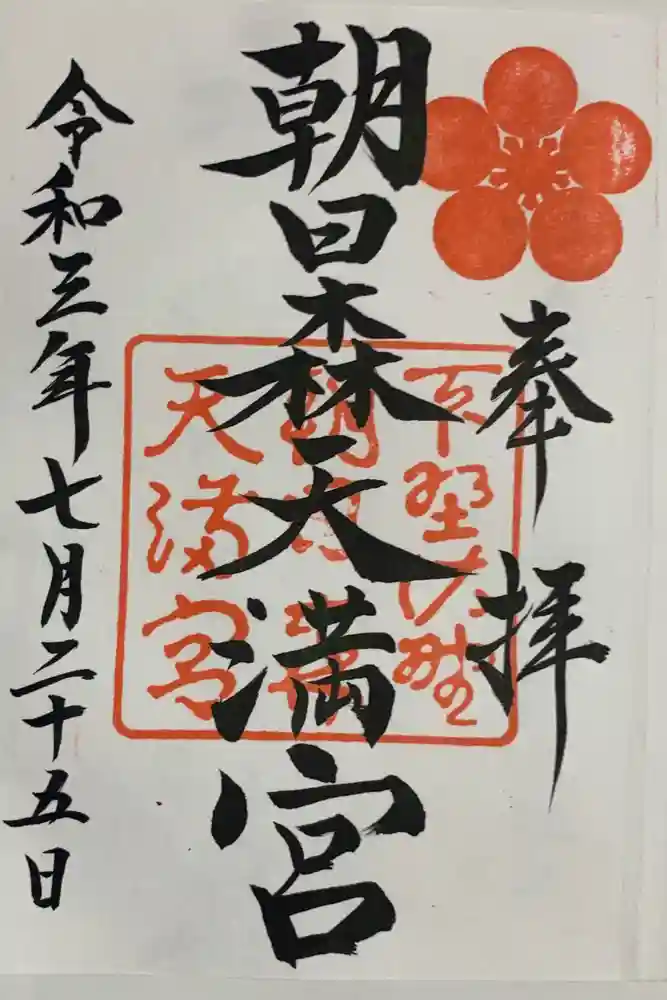 奉拝
朝日森天満宮
下野佐野
朝日森
天満宮
令和三年七月二十五日